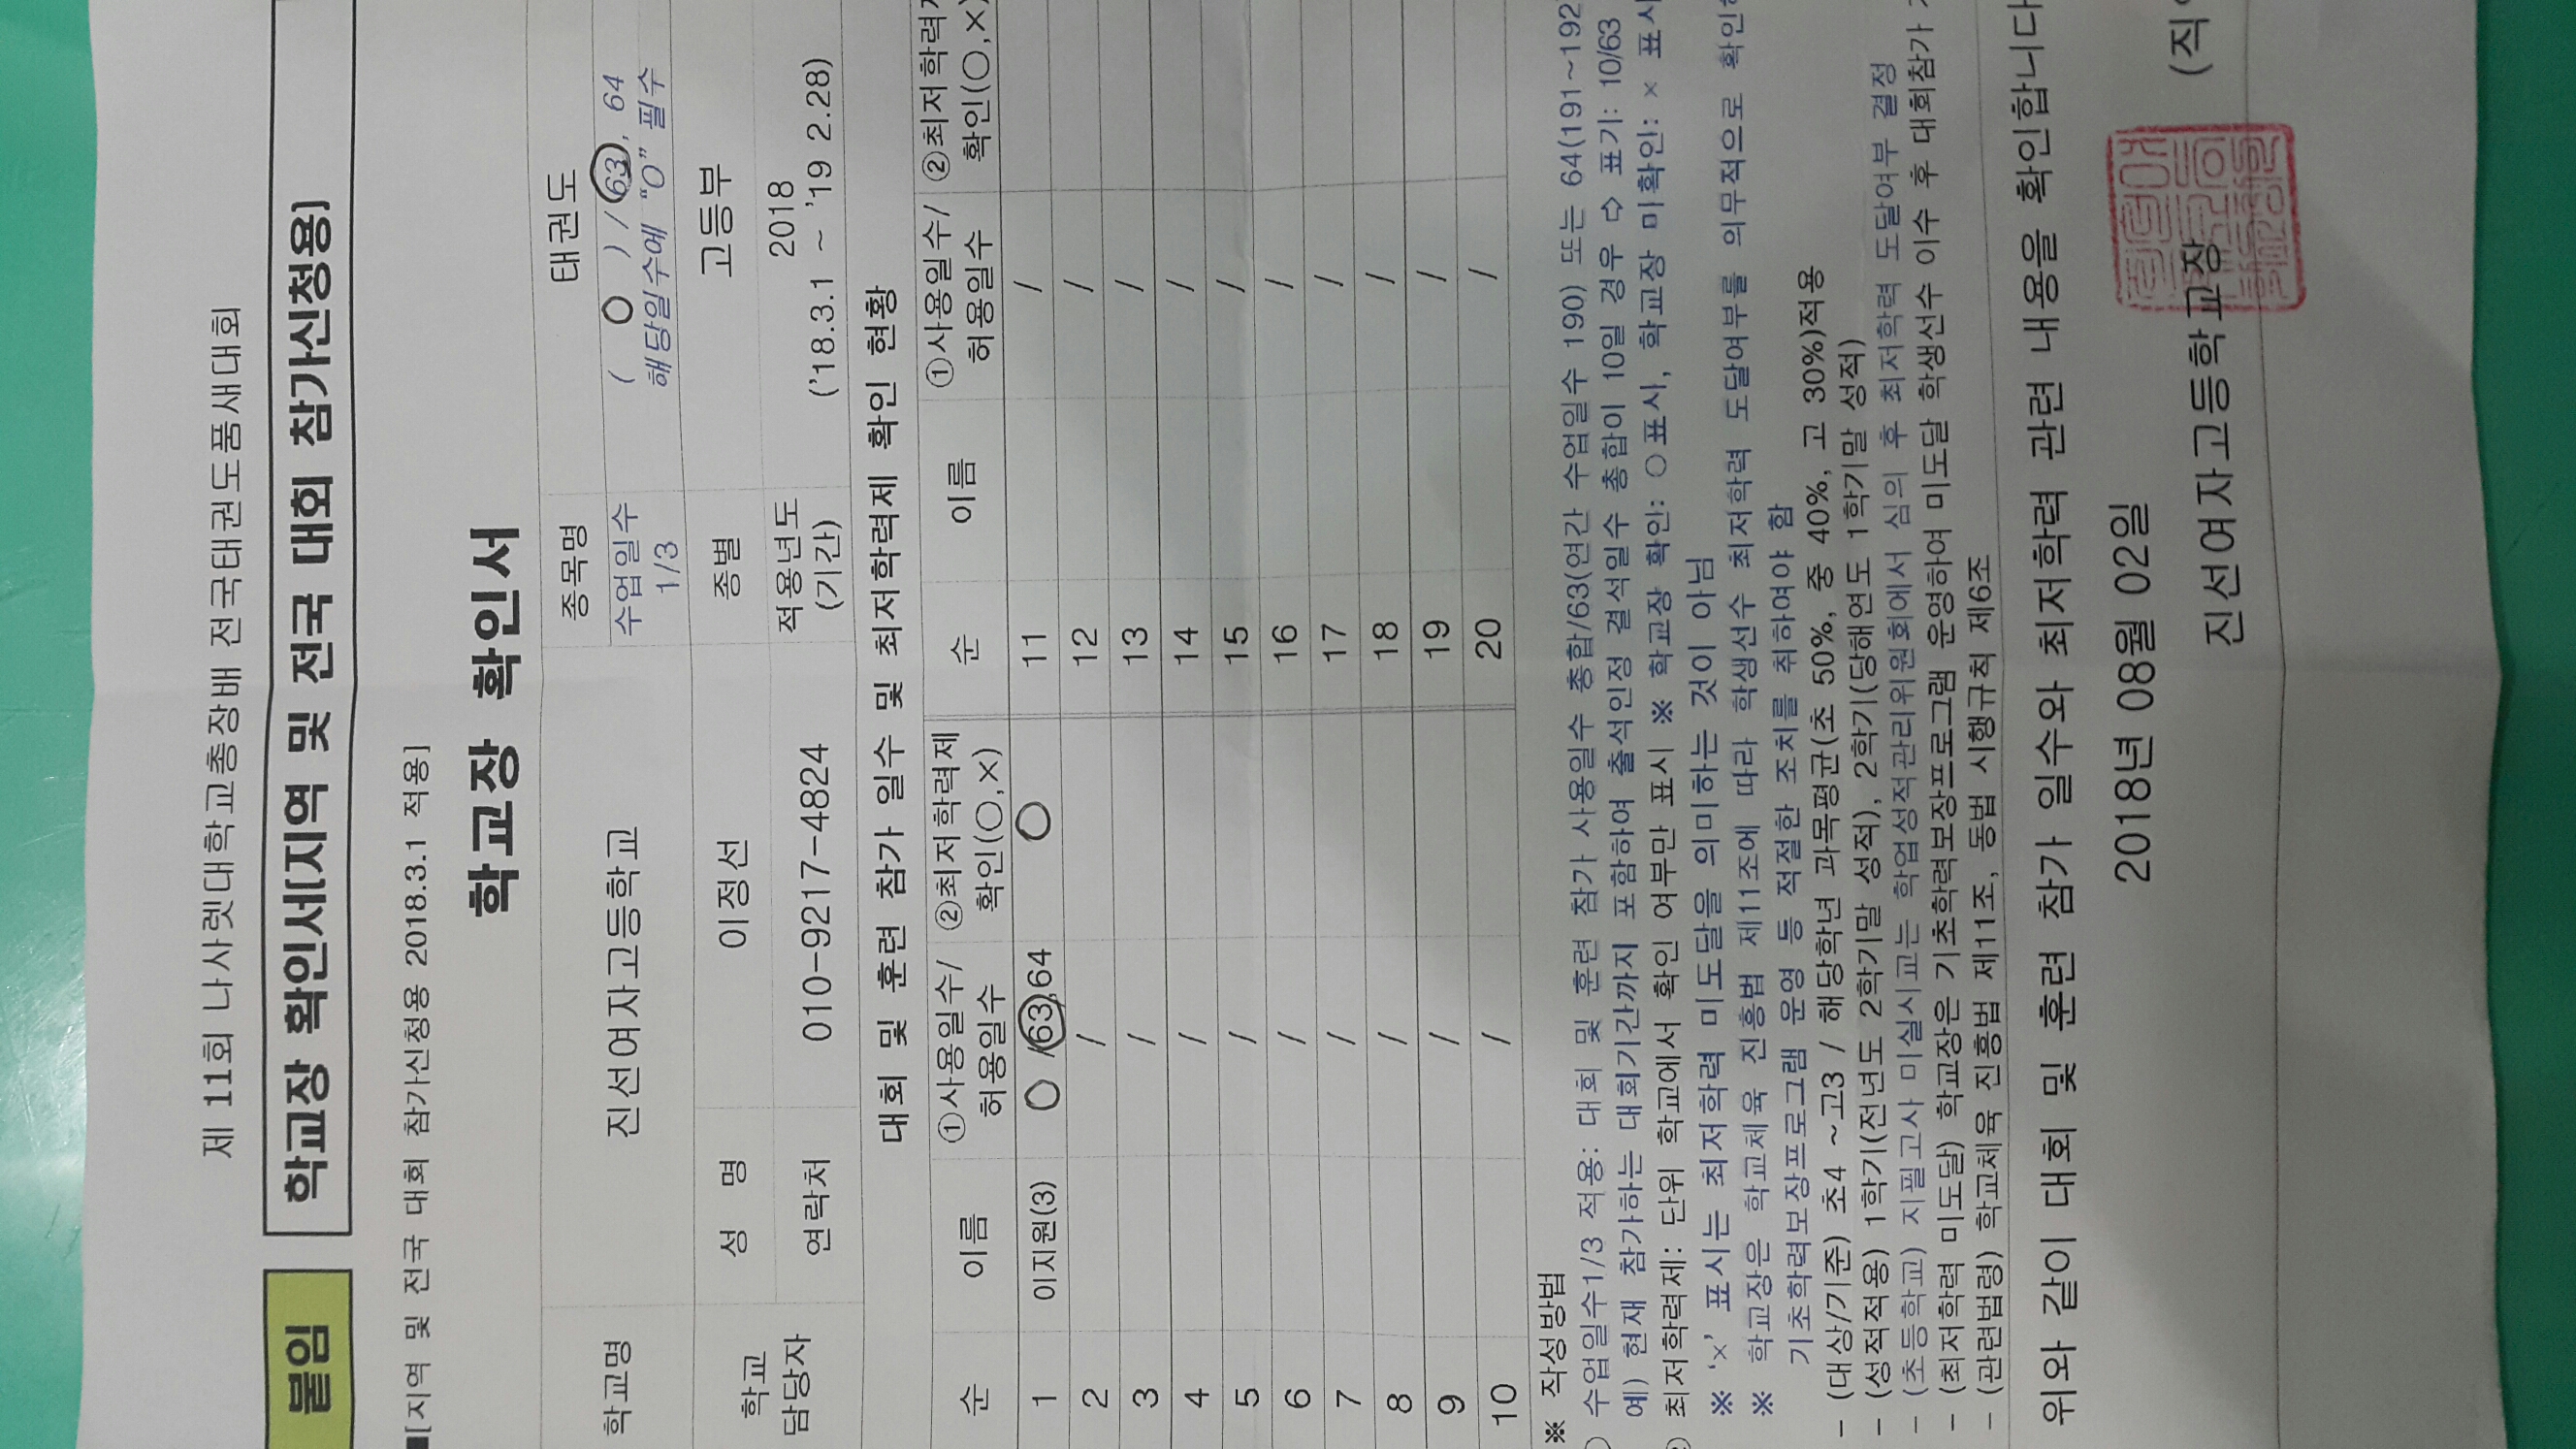 제 11회 나사렛대학교총장배 전국태권도품새대회
붙임 학교장 확인서[지역 및 전국 대회 참가신청용]
■[지역 및 전국 대회 참가신청용 2018.3.1 적용]
학교장 확인서
학교명 진선여자고등학교 종목명 태권도
수업일수 1/3 ( O ) / 63, 64
해당일수에 "O" 필수
학교 담당자 성 명 이정선 종별 고등부
연락처 010-9217-4824 적용년도 (기간) 2018
('18.3.1 ~ '19 2.28)
대회 및 훈련 참가 일수 및 최저학력제 확인 현황
순 이름 ①사용일수/ 허용일수 ②최저학력제 확인(○,×) 순 이름 ①사용일수/ 허용일수 ②최저학력 확인(○,×)
1 이지원(3) O /63,64 O 11 /
2 / 12 /
3 / 13 /
4 / 14 /
5 / 15 /
6 / 16 /
7 / 17 /
8 / 18 /
9 / 19 /
10 / 20 /
※ 작성방법
수업일수1/3 적용: 대회 및 훈련 참가 사용일수 총합/63(연간 수업일수 190) 또는 64(191~192
예) 현재 참가하는 대회기간까지 포함하여 출석인정 결석일수 총합이 10일 경우 ⇨ 표기: 10/63
최저학력제: 단위 학교에서 확인 여부만 표시 ※ 학교장 확인: ○표시, 학교장 미확인: × 표시
※ '×' 표시는 최저학력 미도달을 의미하는 것이 아님
※ 학교장은 학교체육 진흥법 제11조에 따라 학생선수 최저학력 도달여부를 의무적으로 확인
기초학력보장프로그램 운영 등 적절한 조치를 취하여야 함
- (대상/기준) 초4 ~고3 / 해당학년 과목평균(초 50%, 중 40%, 고 30%)적용
- (성적적용) 1학기(전년도 2학기말 성적), 2학기(당해연도 1학기말 성적)
- (초등학교) 지필고사 미실시교는 학업성적관리위원회에서 심의 후 최저학력 도달여부 결정
- (최저학력 미도달) 학교장은 기초학력보장프로그램 운영하여 미도달 학생선수 이수 후 대회참가
- (관련법령) 학교체육 진흥법 제11조, 동법 시행규칙 제6조
위와 같이 대회 및 훈련 참가 일수와 최저학력 관련 내용을 확인합니다
2018년 08월 02일
진선여자고등학교장 (직